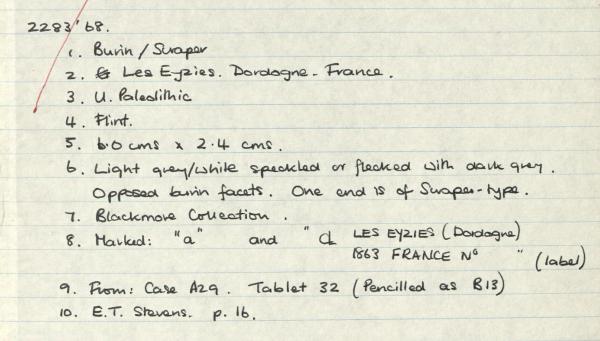 2283'68.
1. Burin / Scraper
2. Les Eyzies. Dordogne - France.
3. U. Paleolithic
4. Flint.
5. 6.0 cms x 2.4 cms.
6. Light grey/white speckled or flecked with dark grey.
Opposed burin facets. One end is of Scraper-type.
7. Blackmore Collection.
8. Marked: "a" and " CL LES EYZIES (Dordogne)
1863 FRANCE Nº " (label)
9. From: Case A29. Tablet 32 (Pencilled as B13)
10. E.T. Stevens. p. 16.